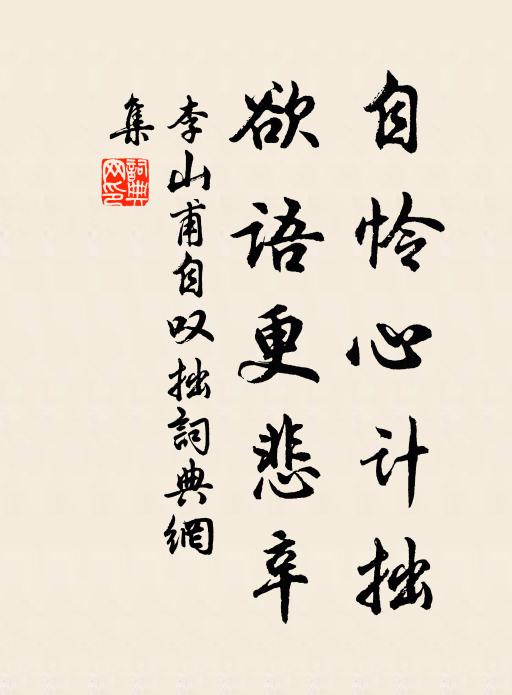 自怜心计拙
欲语更悲辛
李山甫自叹拙詞典網
集
詞典
网印